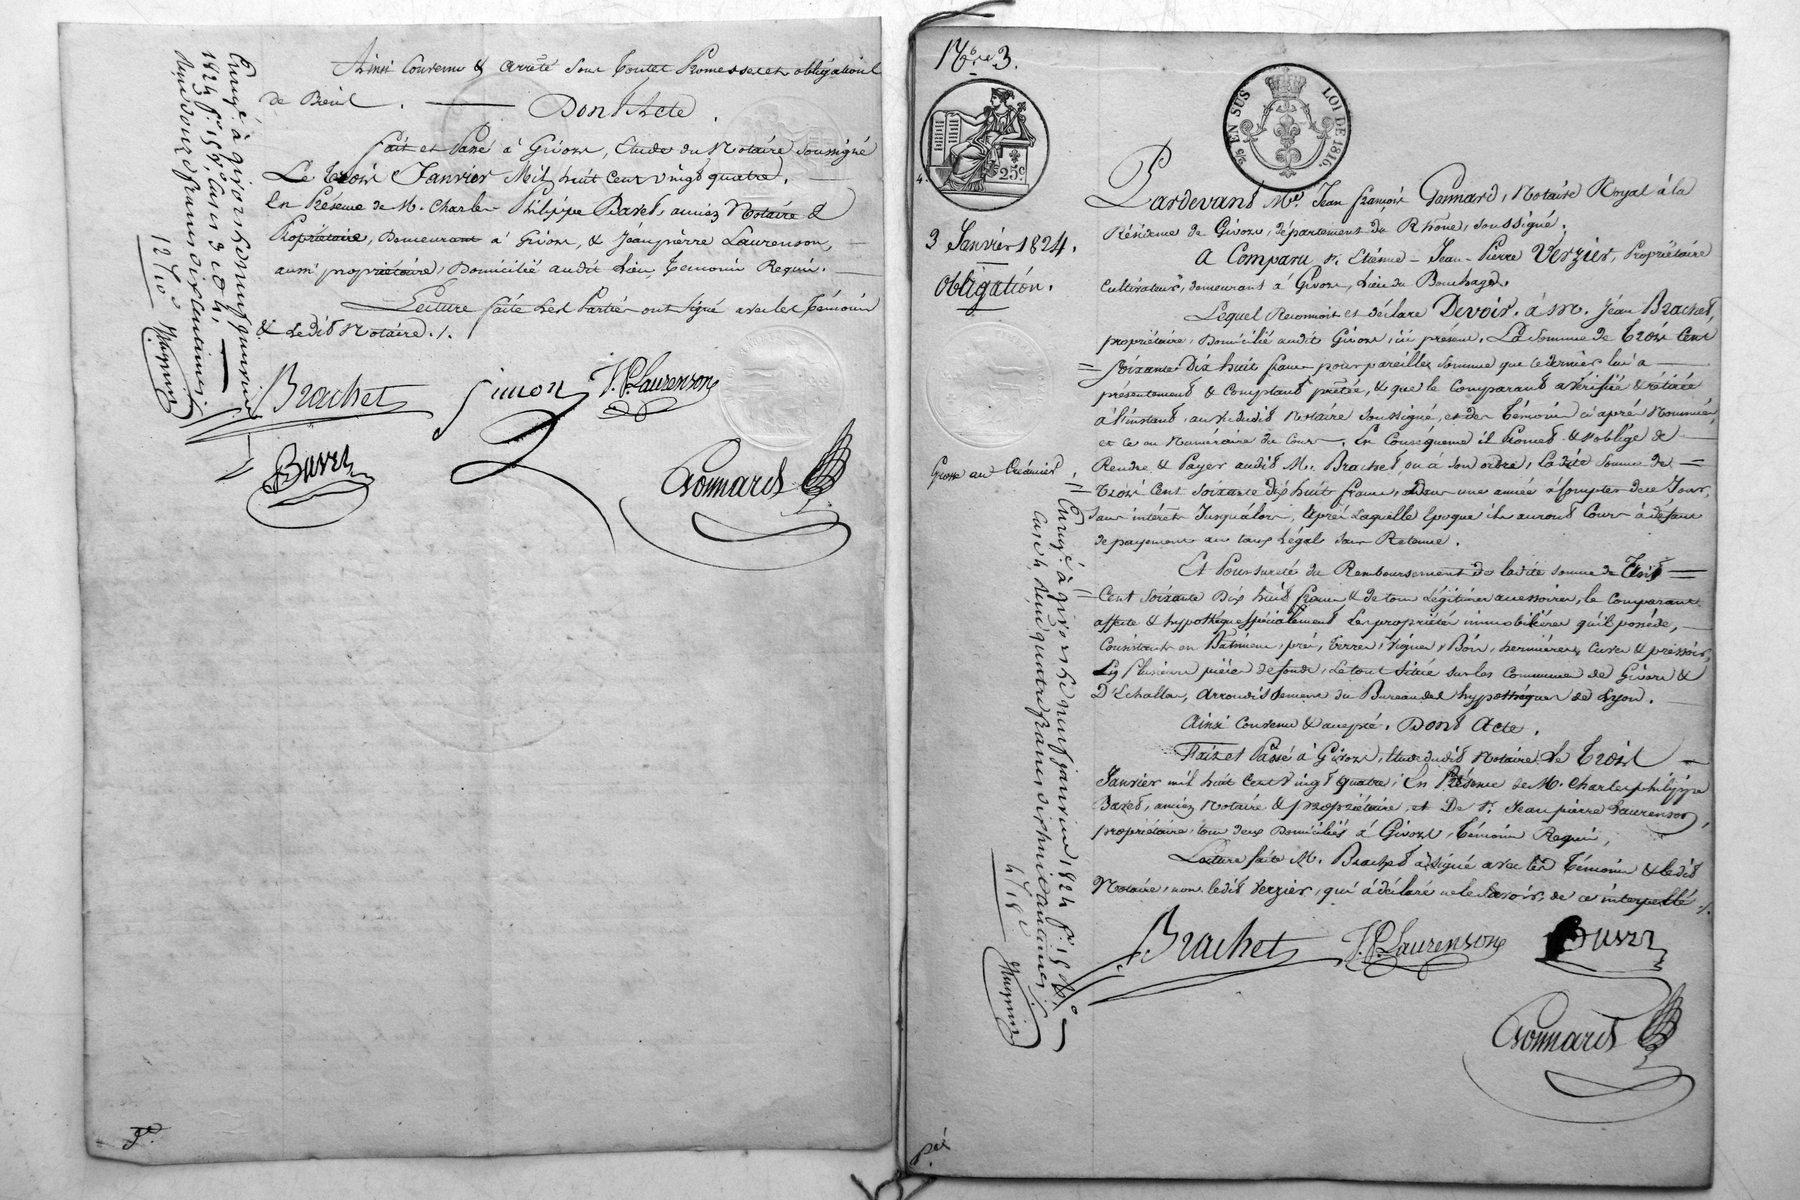 Ainsi Convenu & Arrêté Sous Toutes Promesses et obligations
de Droit. — Dont Acte.
Fait et Passé à Givors, Etude du Notaire Soussigné
Le Trois Janvier Mil huit Cent vingt quatre,
En Présence de M. Charles Philippe Bavet, ancien Notaire &
Propriétaire, Demeurant à Givors, & Jean pierre Laurenson,
aussi propriétaire, Domicilié audit Lieu, Témoins Requis.
Lecture faite Les Parties ont Signé avec les Témoins
& Ledit Notaire./.
Brachet Simon J.P. Laurenson
Bavet
Gonnard
Enregé. à givors le neuf janvier
1824 fo. 15
12/10
Nº 3.
5/5 EN SUS LOI DE 1816.
25c
3 Janvier 1824.
Obligation.
Grosse au Créancier
Pardevant Me. Jean françois Gonnard, Notaire Royal à la
Résidence de Givors, département du Rhône, soussigné.
A Comparu Sr. Etienne-Jean-Pierre Verzier, Propriétaire
Cultivateur, demeurant à Givors, Lieu du
Lequel Reconnoit et déclare Devoir à M. Jean Brachet,
propriétaire, Domicilié audit Givors, ici présent, La Somme de Trois Cent
Soixante Dix huit francs pour pareille somme que ce dernier lui a
présentement & Comptant prêtée, & que le Comparant a vérifiée & retirée
à l'instant, au vu dudit Notaire Soussigné, et des Témoins ci après Nommés,
et Ce en Numéraire de Cours. En Conséquence il Promet & s'oblige de
Rendre & Payer audit M. Brachet, ou à Son ordre, La dite Somme de
Trois Cent Soixante Dix huit francs, Dans une année à Compter de ce Jour,
Sans intérêts Jusqu'alors, Après Laquelle Epoque ils auront Cours à défaut
de payement au taux Légal Sans Retenue.
Et Pour sureté du Remboursement de ladite Somme de Trois
Cent Soixante Dix huit francs & de tous Légitimes accessoires, le Comparant
affecte & hypothèque Spécialement Les propriétés immobilières qu'il possède,
Consistant en Bâtiments, prés, Terres, Vignes, Bois, hermières, Cuves & pressoir,
En Plusieurs pièces de fonds, Le tout Situé Sur les Communes de Givors &
D'Echallas, Arrondissement du Bureau des hypothèques de Lyon.
Ainsi Convenu & accepté. Dont Acte.
Fait et Passé à Givors, Etude dudit Notaire, Le Trois
Janvier mil huit Cent vingt quatre, En Présence de M. Charles philippe
Bavet, ancien Notaire & propriétaire, et De Sr. Jean pierre Laurenson,
propriétaire, tous deux Domiciliés à Givors, Témoins Requis,
Lecture faite M. Brachet a signé avec les Témoins & ledit
Notaire, non ledit Verzier, qui a déclaré ne le Savoir, de ce interpellé./.
Brachet J.P. Laurenson Bavet
Gonnard
Enregé. à givors le neuf janvier 1824 fo. 15
quatre francs dix huit centimes
4/18